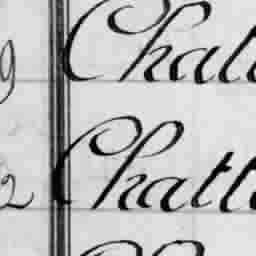 9 Chatt
2 Chatt